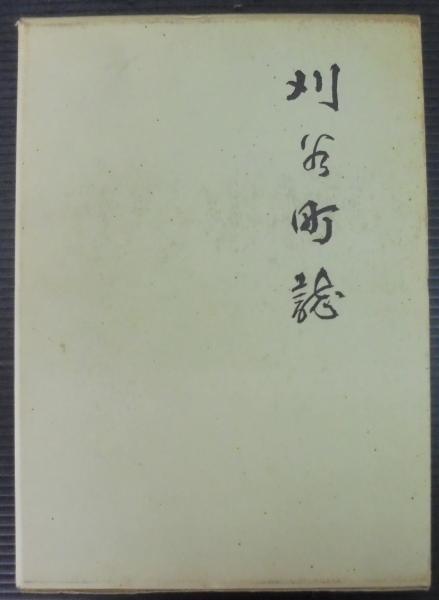 刈谷町誌